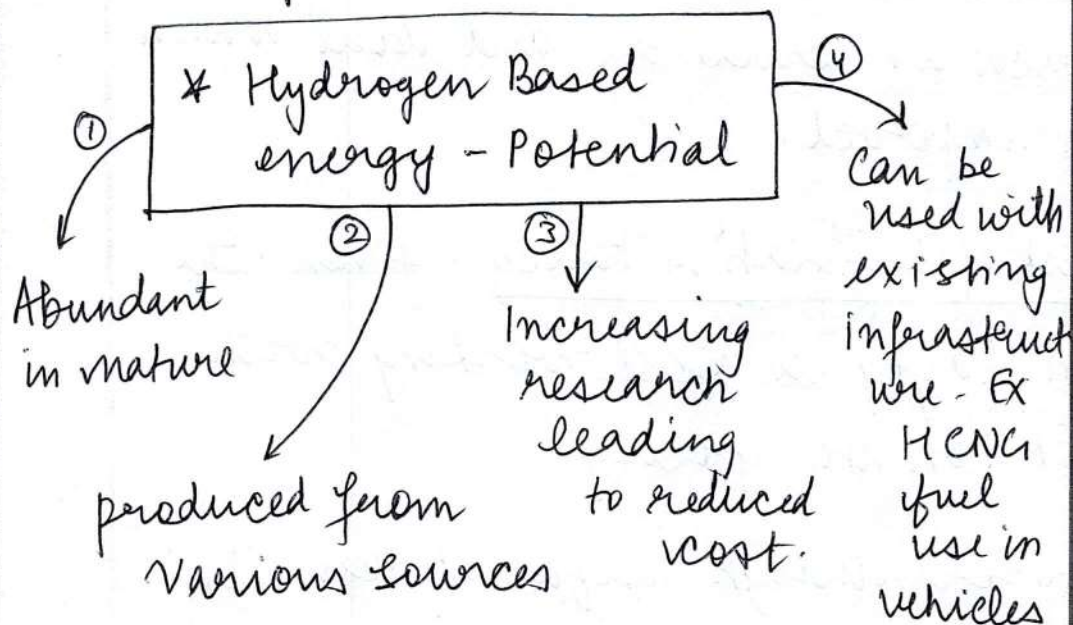 * Hydrogen Based
energy - Potential
①
Abundant
in nature
②
produced from
various sources
③
Increasing
research
leading
to reduced
cost.
④
Can be
used with
existing
infrastruct
ure. Ex
HCNG
fuel
use in
vehicles